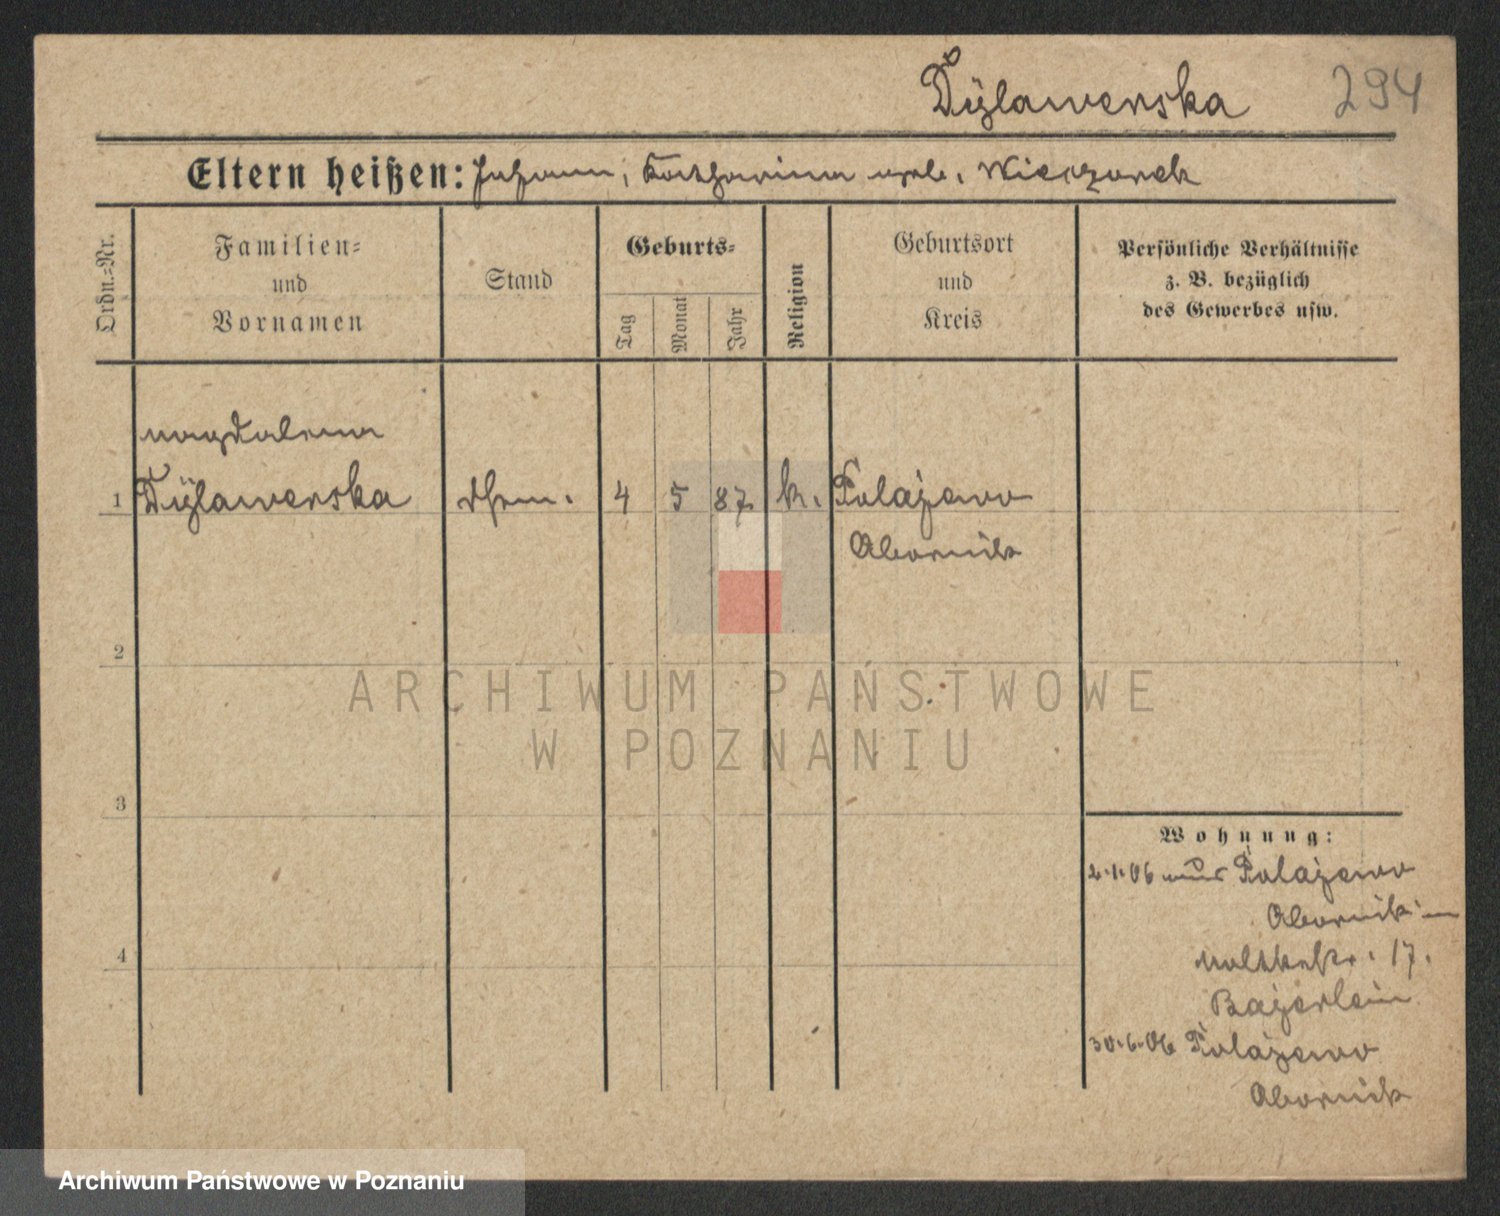 Dÿlawerska 294
Eltern heißen: Johann, Katharina geb. Wieczorek
Ordn.=Nr.
Familien=
und
Vornamen
Stand
Geburts=
Tag
Monat
Jahr
Religion
Geburtsort
und
Kreis
Persönliche Verhältnisse
z. B. bezüglich
des Gewerbes usw.
Magdalena
1 Dÿlawerska 4 5 87. k. Polajewo
Obornik
2
3
4
Wohnung:
2.1.06 aus Polajewo
Obornik
Moltkestr. 17.
Bajerlein
30.6.06 Polajewo
Obornik
ARCHIWUM PAŃSTWOWE
W POZNANIU
Archiwum Państwowe w Poznaniu